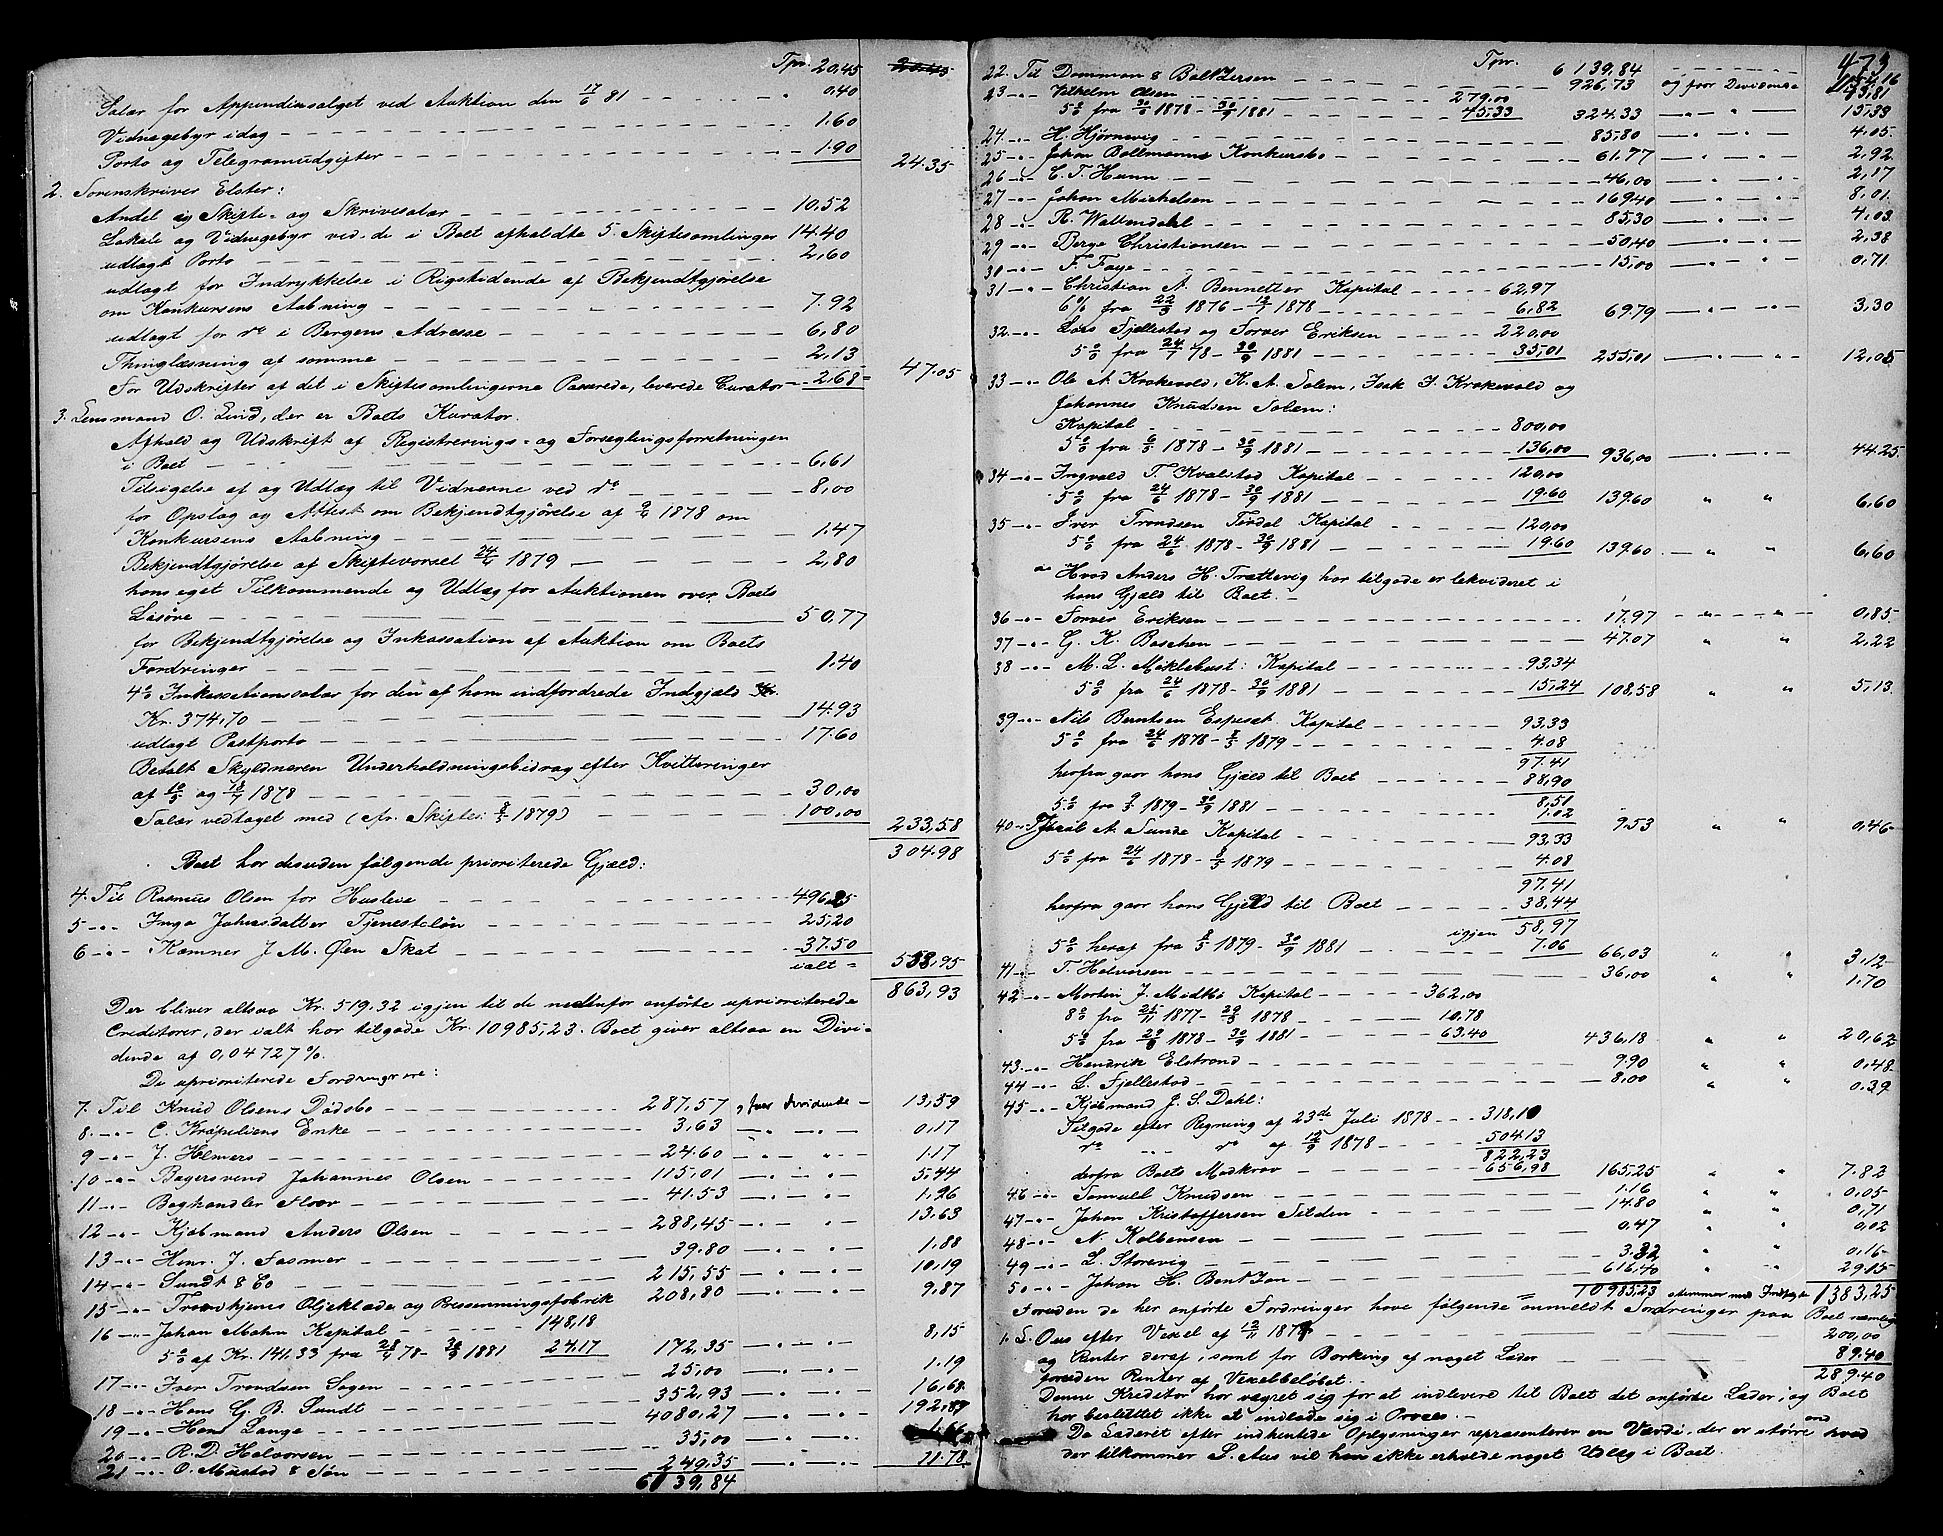 Tpr. 20,45 20.45
Salær for Appendixsalget ved Auktion den 17/6 81 - - - 0.40
Vidnegebyr idag - - - 1.60
Porto og Telegramudgifter - - - 1.90 24.35
2. Sorenskriver Elster:
Andel i Skifte- og Skriversalær - - - 10.52
Lokale og Vidnegebyr ved de i Boet afholdte 5 Skiftesamlinger 14.40
udlagt Porto - - - 2,60
udlagt for Indrykkelse i Rigstidende af Bekjendtgjørelse
om Konkursens Aabning - - - 7.92
udlagt for do i Bergens Adresse - - - 6,80
Thinglæsning af somme - - - 2,13
For Udskrifter af det i Skiftesamlingerne Passerede, leverede Curator - - 2,68 = 47.05
3. Lensmand O. Lind, der er Boets Kurator.
Afhold og Udskrift af Registrerings- og Forseglingsforretningen
i Boet - - - 6,61
Tilsigelse af og Udlæg til Vidnerne ved do - - - 8,00
for Opslag og Attest om Bekjendtgjørelse af 9/4 1878 om
Konkursens Aabning - - - 1.47
Bekjendtgjørelse af Skiftevarsel 24/4 1879 - - - 2,80
hans eget Tilkommende og Udlæg for Auktionen over Boets
Løsøre - - - 50.77
for Bekjendtgjørelse og Inkassation af Auktion om Boets
Fordringer - - - 1.40
4% Inkassationssalær for den af ham indfordrede Indgjæld Kr.
Kr. 374,70 - - - 14.93
udlagt Postporto - - - 17.60
Betalt Skyldneren Underholdningsbidrag efter Kvitteringer
af 10/5 og 18/7 1878 - - - 30,00
Salær vedtaget med (cfr. Skiftes: 8/5 1879) - - - 100,00 233,58
304.98
Boet har desuden følgende prioriterede Gjæld:
4. Til Rasmus Olsen for Husleie - - - 496.25
5 - " - Inga Johnsdatter Tjenesteløn - - - 25,20
6 - " - Kæmner J. M. Øen Skat - - - 37.50
ialt = 558,95
863,93
Der bliver altsaa Kr. 519.32 igjen til de nedenfor anførte uprioriterede
Creditorer, der ialt har tilgode Kr. 10985,23. Boet giver altsaa en Divi-
dende af 0,04727%.
De uprioriterede Fordringer ere:
7. Til Knud Olsens Dødsbo - - - 287,57 og faar dividende - 13,59
8. - " - C. Krøpeliens Enke - - - 3,63 - " - " - 0,17
9 - " - J. Helmers - - - 24.60 - " - " - 1.17
10 - " - Bagersvend Johannes Olsen - - - 115,01 - " - " - 5,44
11 - " - Boghandler Floor - - - 41.53 - " - " - 1,96
12 - " - Kjøbmand Anders Olsen - - - 288,45 - " - " - 13.63
13 - " - Henr. J. Fasmer - - - 39.80 - " - " - 1.88
14 - " - Sundt & Co - - - 215,55 - " - " - 10,19
15 - " - Trondhjems Oljeklæde og Pressenningsfabrik 208,80 9,87
16 - " - Johan Mohn Kapital - - - 148,18
5% af Kr. 141.33 fra 28/4 78 - 30/9 1881 24.17 172,35 8,15
17 - " - Iver Trondsen Sagen - - - 25,00 1.19
18 - " - Hans G. B. Sundt - - - 352,93 16,68
19 - " - Hans Lange - - - 4080,27 - " - " - 192,87
20 - " - R. D. Halvorsen - - - 35,00
21 - " - O. Mustad & Søn - - - 249.35 - " - " - 11.78
6139,84
473
22. Til Damman & Boltzersen - - - Tpr. 6139,84
926,73 og faar Dividende 43,81
23 - " - Vilhelm Olsen - - - 279.00
5% fra 30/6 1878 - 30/9 1881 - - - 45,33 324.33 - " - " - 15,33
24 - " - H. Hjørnevig - - - 85,80 - " - " - 4.05
25 - " - Johan Bollmanns Konkursbo - - - 61.77 - " - " - 2,92
26 - " - C. T. Hamn - - - 46,00 - " - " - 2,17
27 - " - Johan Michelsen - - - 169.40 - " - " - 8,01
28 - " - R. Wallendahl - - - 85,30 - " - " - 4,03
29 - " - Berge Christiansen - - - 50,40 - " - " - 2,38
30 - " - F. Faye - - - 15,00 - " - " - 0,71
31 - " - Christian A. Bennetter Kapital - - - 62,97
6% fra 22/9 1876 - 12/7 1878 - - - 6,82 69.79 - " - " - 3,30
32 - " - Lars Fjellestad og Torver Eriksen - - - 220,00
5% fra 24/7 78 - 30/9 1881 - - - 35,01 255,01 - " - " - 12,05
33 - " - Ole A. Krakevold, K. A. Solem, Isak I. Krakevold og
Johannes Knudsen Solem:
Kapital - - - 800,00
5% fra 6/5 1878 - 30/9 1881 - - - 136,00 936,00 - " - " - 44.25
34 - " - Ingvald T. Kvalstad Kapital - - - 120,00
5% fra 24/6 1878 - 30/9 1881 - - - 19.60 139.60 " " 6,60
35 - " - Iver Trondsen Tordal Kapital - - - 120,00
5% fra 24/6 1878 - 30/9 1881 - - - 19.60 139.60 " " 6,60
Hvad Anders H. Trættevig har tilgode er likvideret i
hans Gjæld til Boet. -
36 - " - Torver Eriksen - - - 17.97 " " 0,85
37 - " - G. K. Boschen - - - 47.07 " " 2,22
38 - " - M. L. Møklebust: Kapital - - - 93,34
5% fra 24/6 1878 - 30/9 1881 - - - 15,24 108.58 " " 5,13
39 - " - Nils Berntsen Espeset Kapital - - - 93,33
5% fra 24/6 1878 - 8/5 1879 - - - 4.08
97.41
herfra gaar hans Gjæld til Boet - - - 88,90
8,51
5% fra 9/5 1879 - 30/9 1881 - - - 1.02 9.53 " " 0,46
40 - " - Jacob A. Sunde Kapital - - - 93,33
5% fra 24/6 1878 - 8/5 1879 - - - 4.08
97.41
herfra gaar hans Gjæld til Boet - - - 38,44
igjen 58,97
5% heraf fra 8/5 1879 - 30/9 1881 - - - 7.06 66,03 " " 3,12
41 - " - T. Halvorsen - - - 36,00 " " 1.70
42 - " - Morten J. Midtbø Kapital - - - 362,00
8% fra 21/11 1877 - 29/3 1878 - - - 10,78
5% fra 29/3 1878 - 30/9 1881 - - - 63.40 436,18 " " 20,62
43 - " - Hendrik Elstrand - - - 9.90 " " 0,48
44 - " - L. Fjellestad - - - 8.00 " " 0.39
45 - " - Kjøbmand J. S. Dahl:
Tilgode efter Regning af 23de Juli 1878 - - 318,10
do - " - do af 12/9 1878 - - - 504.13
822,23
derfra Boets Modkrav - - - 656,98 165,25 " " 7.82
46 - " - Samuel Knudsen - - - 1.16 " " 0,05
47 - " - Johan Kristoffersen Selden - - - 14.80 " " 0,71
48 - " - N. Kolbensen - - - 0,47 " " 0,02
49 - " - L. Storevig - - - 3.32 " " 0,16
50 - " - Johan H. Bentzon - - - 616,40 " " 29.15
= 10985.23 stemmer med Indtægt 1383,25
Foruden de her anførte Fordringer have følgende anmeldt Fordringer paa Boet nemlig
1. S. Aus efter Vexel af 12/11 187 - - - 200,00
og Renter deraf, samt for Borkning af noget Læder - - - 89.40
foruden Renter af Vexelbeløbet. - - - 289.40
Denne Kreditor har vægret sig for at indlevere til Boet det anførte Læder, og Boet
har besluttet ikke at indlade sig i Proces. -
Da Læderet efter indhentede Oplysninger repræsenterer en Værdi, der er større end hvad
der tilkommer S. Aus vil han ikke erholde noget Udlæg i Boet.